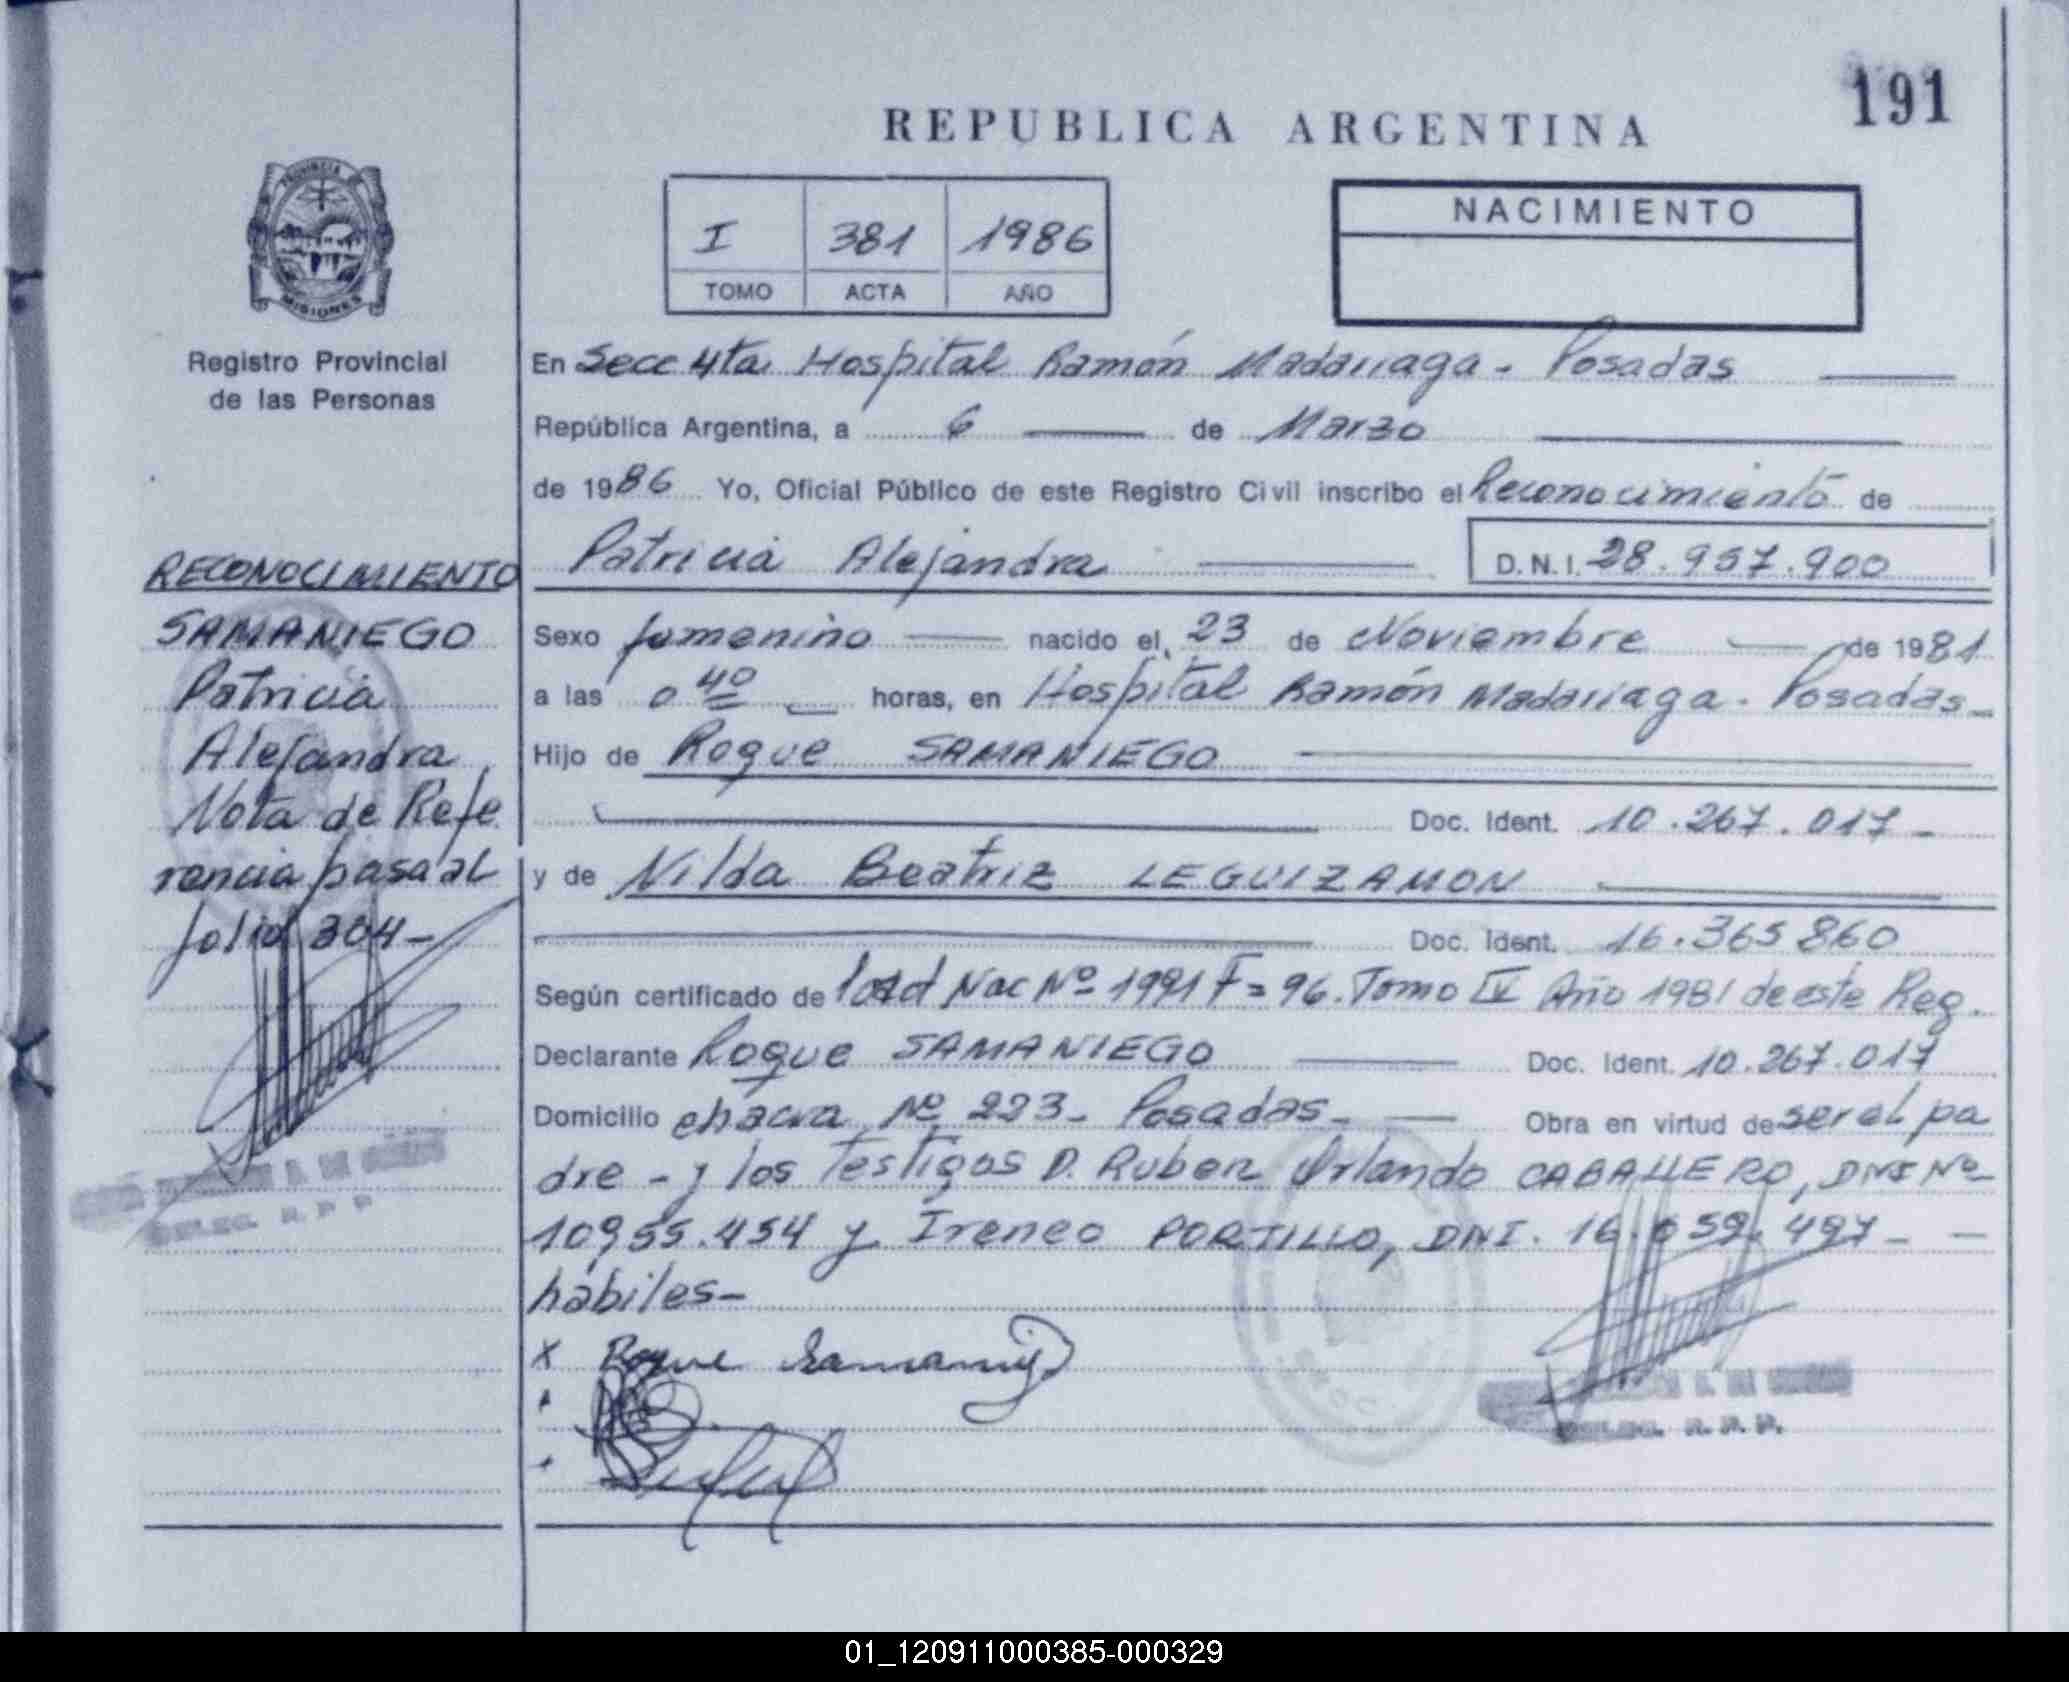 191
REPUBLICA ARGENTINA
I 381 1986
TOMO ACTA AÑO
NACIMIENTO
PROVINCIA DE
MISIONES
Registro Provincial
de las Personas
En Secc 4ta Hospital Ramón Madariaga - Posadas
República Argentina, a 6 de Marzo
de 1986 Yo, Oficial Público de este Registro Civil inscribo el Reconocimiento de
Patricia Alejandra D.N.I. 28.957.900
RECONOCIMIENTO
SAMANIEGO
Patricia
Alejandra
Nota de Refe
rencia pasa al
folio 304-
Sexo femenino nacido el 23 de Noviembre de 1981
a las 0 40 horas, en Hospital Ramón Madariaga - Posadas -
Hijo de Roque SAMANIEGO
Doc. Ident. 10.267.017 -
y de Nilda Beatriz LEGUIZAMON
Doc. Ident. 16.365 860
Según certificado de Nac Nº 1991 F= 96. Tomo IV Año 1981 de este Reg.
Declarante Roque SAMANIEGO Doc. Ident. 10.267.017
Domicilio chacra Nº 223 - Posadas - Obra en virtud de ser el pa
dre - y los Testigos D. Ruben Orlando CABALLERO, DNI Nº
10,955.454 y Ireneo PORTILLO, DNI. 16.059.497 - -
hábiles -
x Roque Samaniego
DELEG. R. P. P.
DELEG. R. P. P.
01_120911000385-000329